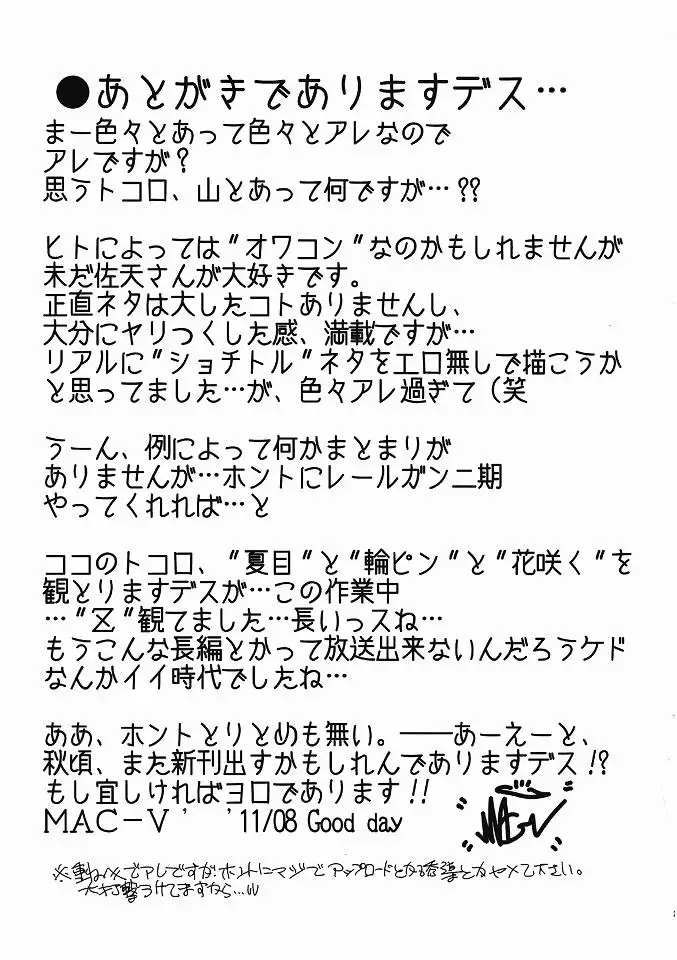 ●あとがきでありますデス…
まー色々とあって色々とアレなので
アレですが?
思うトコロ、山とあって何ですが…??
ヒトによっては"オワコン"なのかもしれませんが
未だ佐天さんが大好きです。
正直ネタは大したコトありませんし、
大分にヤリつくした感、満載ですが…
リアルに"ショチトル"ネタをエロ無しで描こうか
と思ってました…が、色々アレ過ぎて(笑
うーん、例によって何かまとまりが
ありませんが…ホントにレールガン二期
やってくれれば…と
ココのトコロ、"夏目"と"輪ピン"と"花咲く"を
観とりますデスが…この作業中
…"Z"観てました…長いっスね…
もうこんな長編とかって放送出来ないんだろうケド
なんかイイ時代でしたね…
ああ、ホントとりとめも無い。――あーえーと、
秋頃、また新刊出すかもしれんでありますデス!?
もし宜しければヨロであります!!
MAC-V ' '11/08 Good day
※重ね重ねでアレですが、ホントにマジでアップロードとか
とかヤメて下さい。
大打撃うけてますから…w